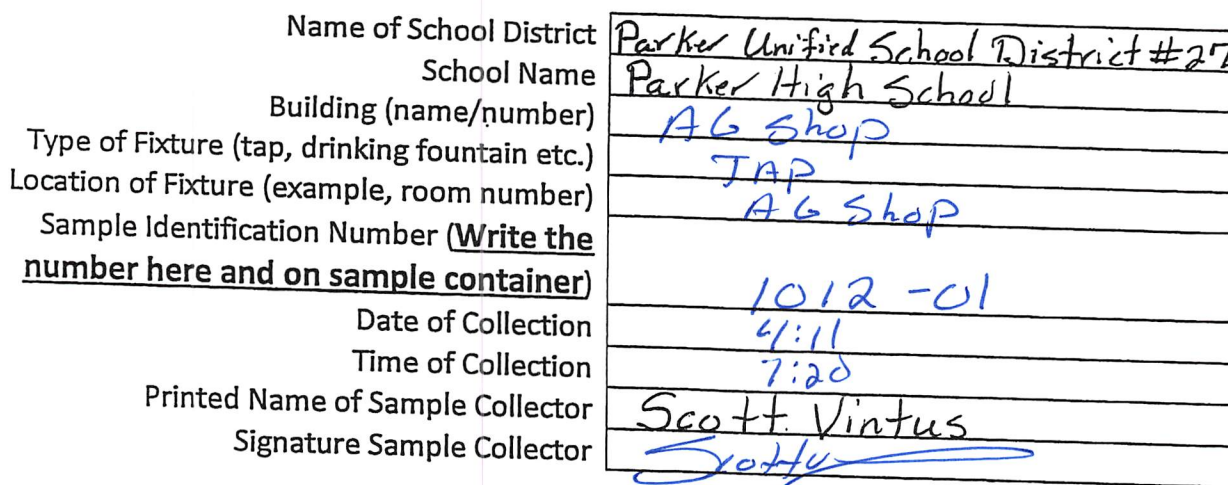 Name of School District Parker Unified School District #27
School Name Parker High School
Building (name/number) AG Shop
Type of Fixture (tap, drinking fountain etc.) TAP
Location of Fixture (example, room number) AG Shop
Sample Identification Number (Write the
number here and on sample container) 1012-01
Date of Collection 4:11
Time of Collection 7:20
Printed Name of Sample Collector Scott Vintus
Signature Sample Collector Scotty